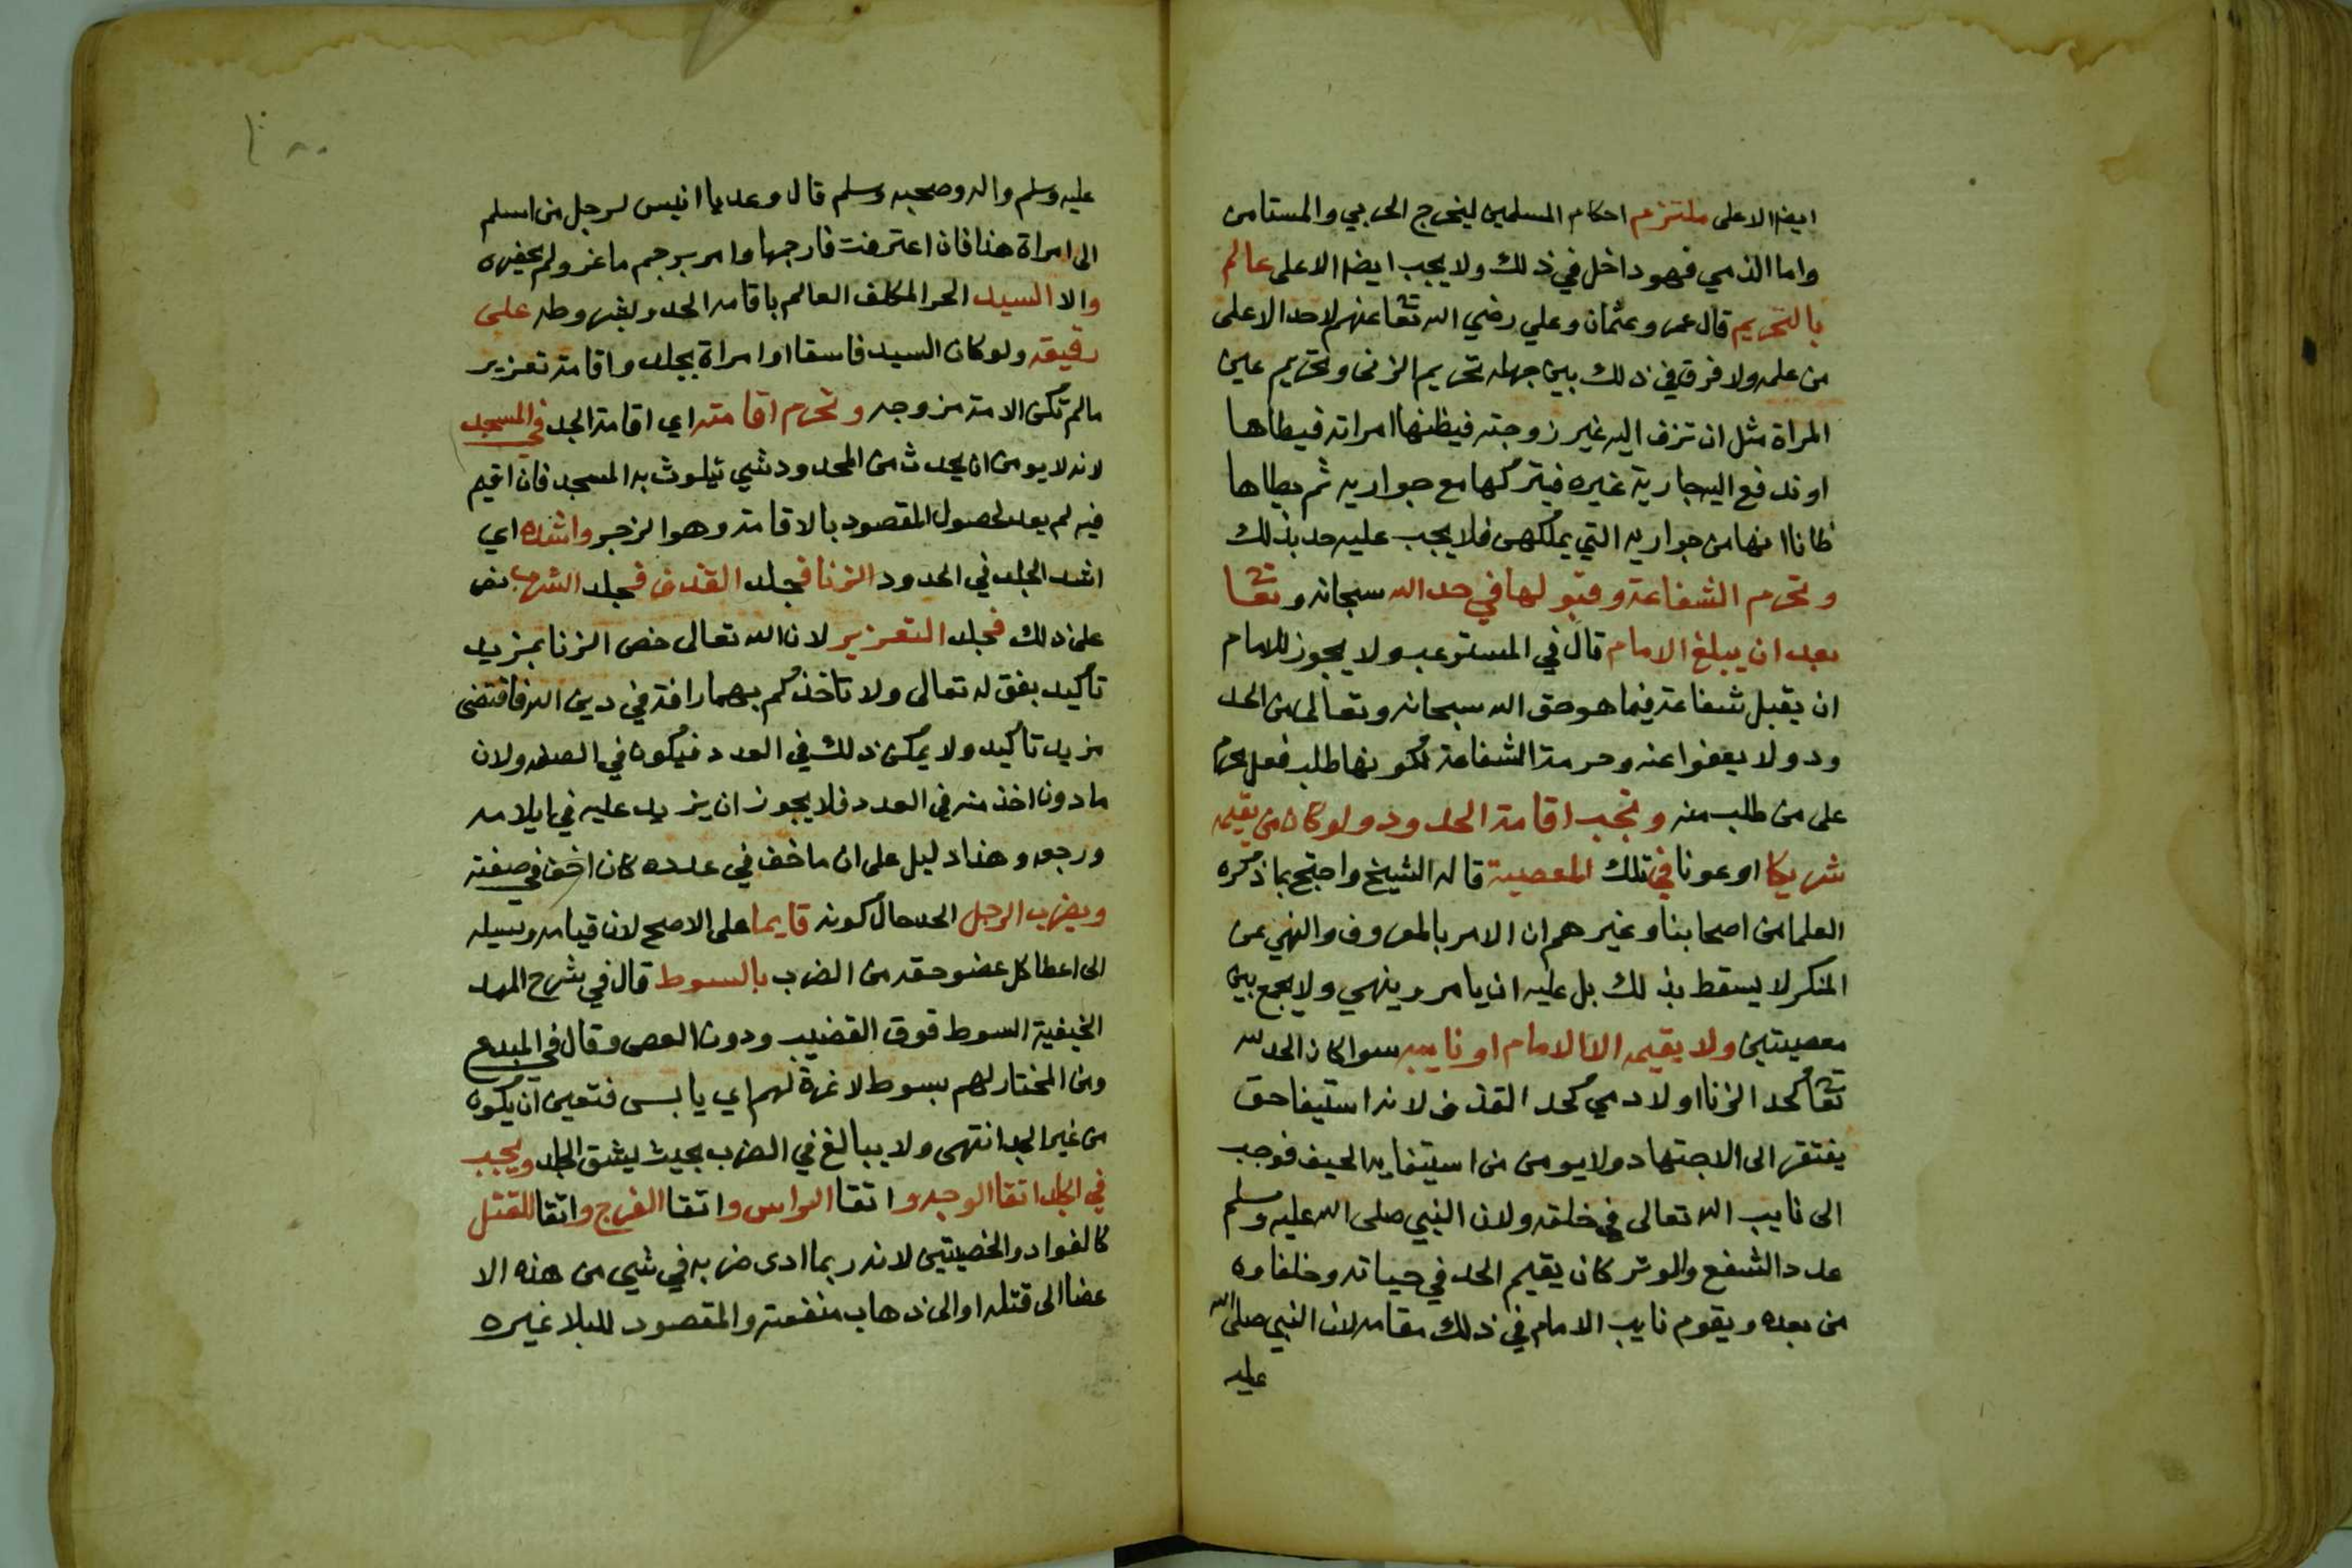 ايضا الا على ملتزم احكام المسلمين ليخرج الحربي والمستامن
واما الذمي فهو داخل في ذلك ولا يجب ايضا الا على عالم
بالتحريم قال عمر وعثمان وعلي رضي الله تعا عنهم لا حد الا على
من علمه ولا فرق في ذلك بين جهله تحريم الزنى وتحريم عين
المراة مثل ان تزف اليه غير زوجته فيظنها امراته فيطاها
او تدفع اليه جارية غيره فيتركها مع جواريه ثم يطاها
ظانا انها من جواريه التي يملكهن فلا يجب عليه حد بذلك
وتحرم الشفاعة وقبولها في حد الله سبحانه وتعا
بعد ان يبلغ الامام قال في المستوعب ولا يجوز للامام
ان يقبل شفاعة فيما هو حق الله سبحانه وتعالى من الحد
ود ولا يعفوا عنه وحرمة الشفاعة لكونها طلب فعل محرم
على من طلب منه وتجب اقامة الحدود ولو كان من يقيمه
شريكا او عونا في تلك المعصية قاله الشيخ واحتج بما ذكره
العلما من اصحابنا وغيرهم ان الامر بالمعروف والنهي عن
المنكر لا يسقط بذلك بل عليه ان يامر وينهي ولا يجمع بين
معصيتين ولا يقيمه الا الامام او نايبه سوا كان الحد لله
تعا كحد الزنا او لادمي كحد القذف لانه استيفا حق
يفتقر الى الاجتهاد ولا يومن من استيفايه الحيف فوجب
الى نايب الله تعالى في خلقه ولان النبي صلى الله عليه وسلم
عدد الشفع والوتر كان يقيم الحد في حياته وخلفاوه
من بعده ويقوم نايب الامام في ذلك مقامه لان النبي صلى الله
عليه
عليه وسلم واله وصحبه وسلم قال وعد يا انيس لرجل من اسلم
الى امراة هذا فان اعترفت فارجمها وامر برجم ماعز ولم يحضره
والا السيد الحر المكلف العالم باقامه الحد وبشروطه على
رقيقه ولو كان السيد فاسقا او امراة بجلد واقامة تعزير
مالم تكن الامة مزوجه وتحرم اقامته اي اقامة الحد في المسجد
لانه لا يومن ان يحدث من المحدود شي يتلوث به المسجد فان اقيم
فيه لم يعد لحصول المقصود بالاقامة وهو الزجر واشده اي
اشد الجلد في الحدود الزنا فجلد القذف فجلد الشرب نص
على ذلك فجلد التعزير لان الله تعالى خص الزنا بمزيد
تاكيد بقوله تعالى ولا تاخذكم بهما رافة في دين الله فاقتضى
مزيد تاكيد ولا يمكن ذلك في العدد فيكون في الصفه ولان
ما دون اخذ منه في العدد فلا يجوز ان يزيد عليه في ايلامه
ورجعه وهذا دليل على ان ما خف في عدده كان اخف في صفته
ويضرب الرجل الحد حال كونه قايما على الاصح لان قيامه وسيله
الى اعطا كل عضو حقه من الضرب بالسوط قال في شرح المهد
الخيفية السوط فوق القضيب ودون العصى وقال في المبدع
ومن المختار لهم بسوط لا ثمرة لهم اي يابس فتعين ان يكون
من غير الجلد انتهى ولا يبالغ في الضرب بحيث يشق الجلد ويجب
في الجلد اتقا الوجه واتقا الراس واتقا الفرج واتقا المقتل
كالفواد والخصيتين لانه ربما ادى ضربه في شي من هذه الا
عضا الى قتله او الى ذهاب منفعته والمقصود للبلا غيره